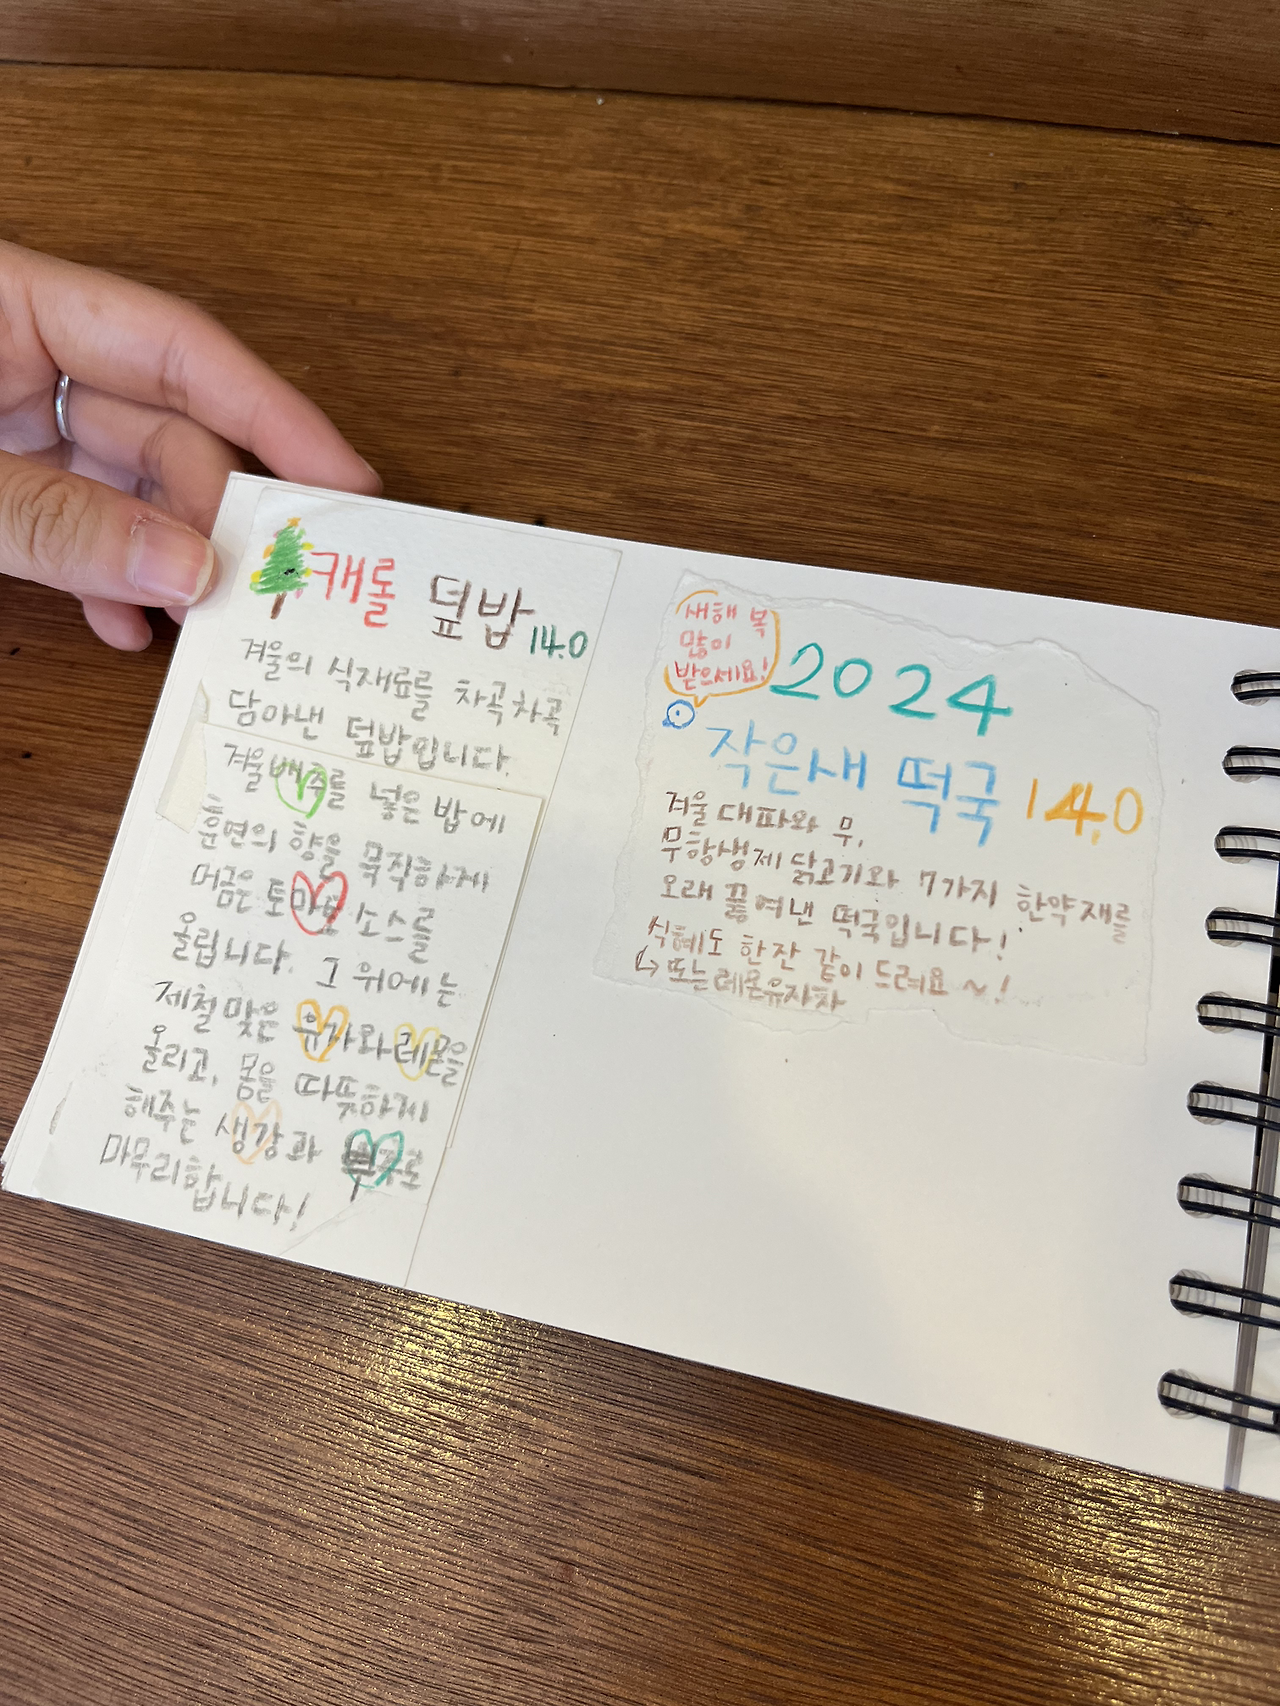 캐롤 덮밥 14.0
겨울의 식재료를 차곡차곡
담아낸 덮밥입니다.
겨울배추를 넣은 밥에
훈연의 향을 묵직하게
머금은 토마토 소스를
올립니다. 그 위에는
제철 맞은 유자와 레몬을
올리고, 몸을 따뜻하게
해주는 생강과 부추로
마무리합니다!
새해 복
많이
받으세요!
2024
작은새 떡국 14.0
겨울 대파와 무,
무항생제 닭고기와 7가지 한약재를
오래 끓여낸 떡국입니다!
식혜도 한잔 같이 드려요~!
↳ 또는 레몬유자차